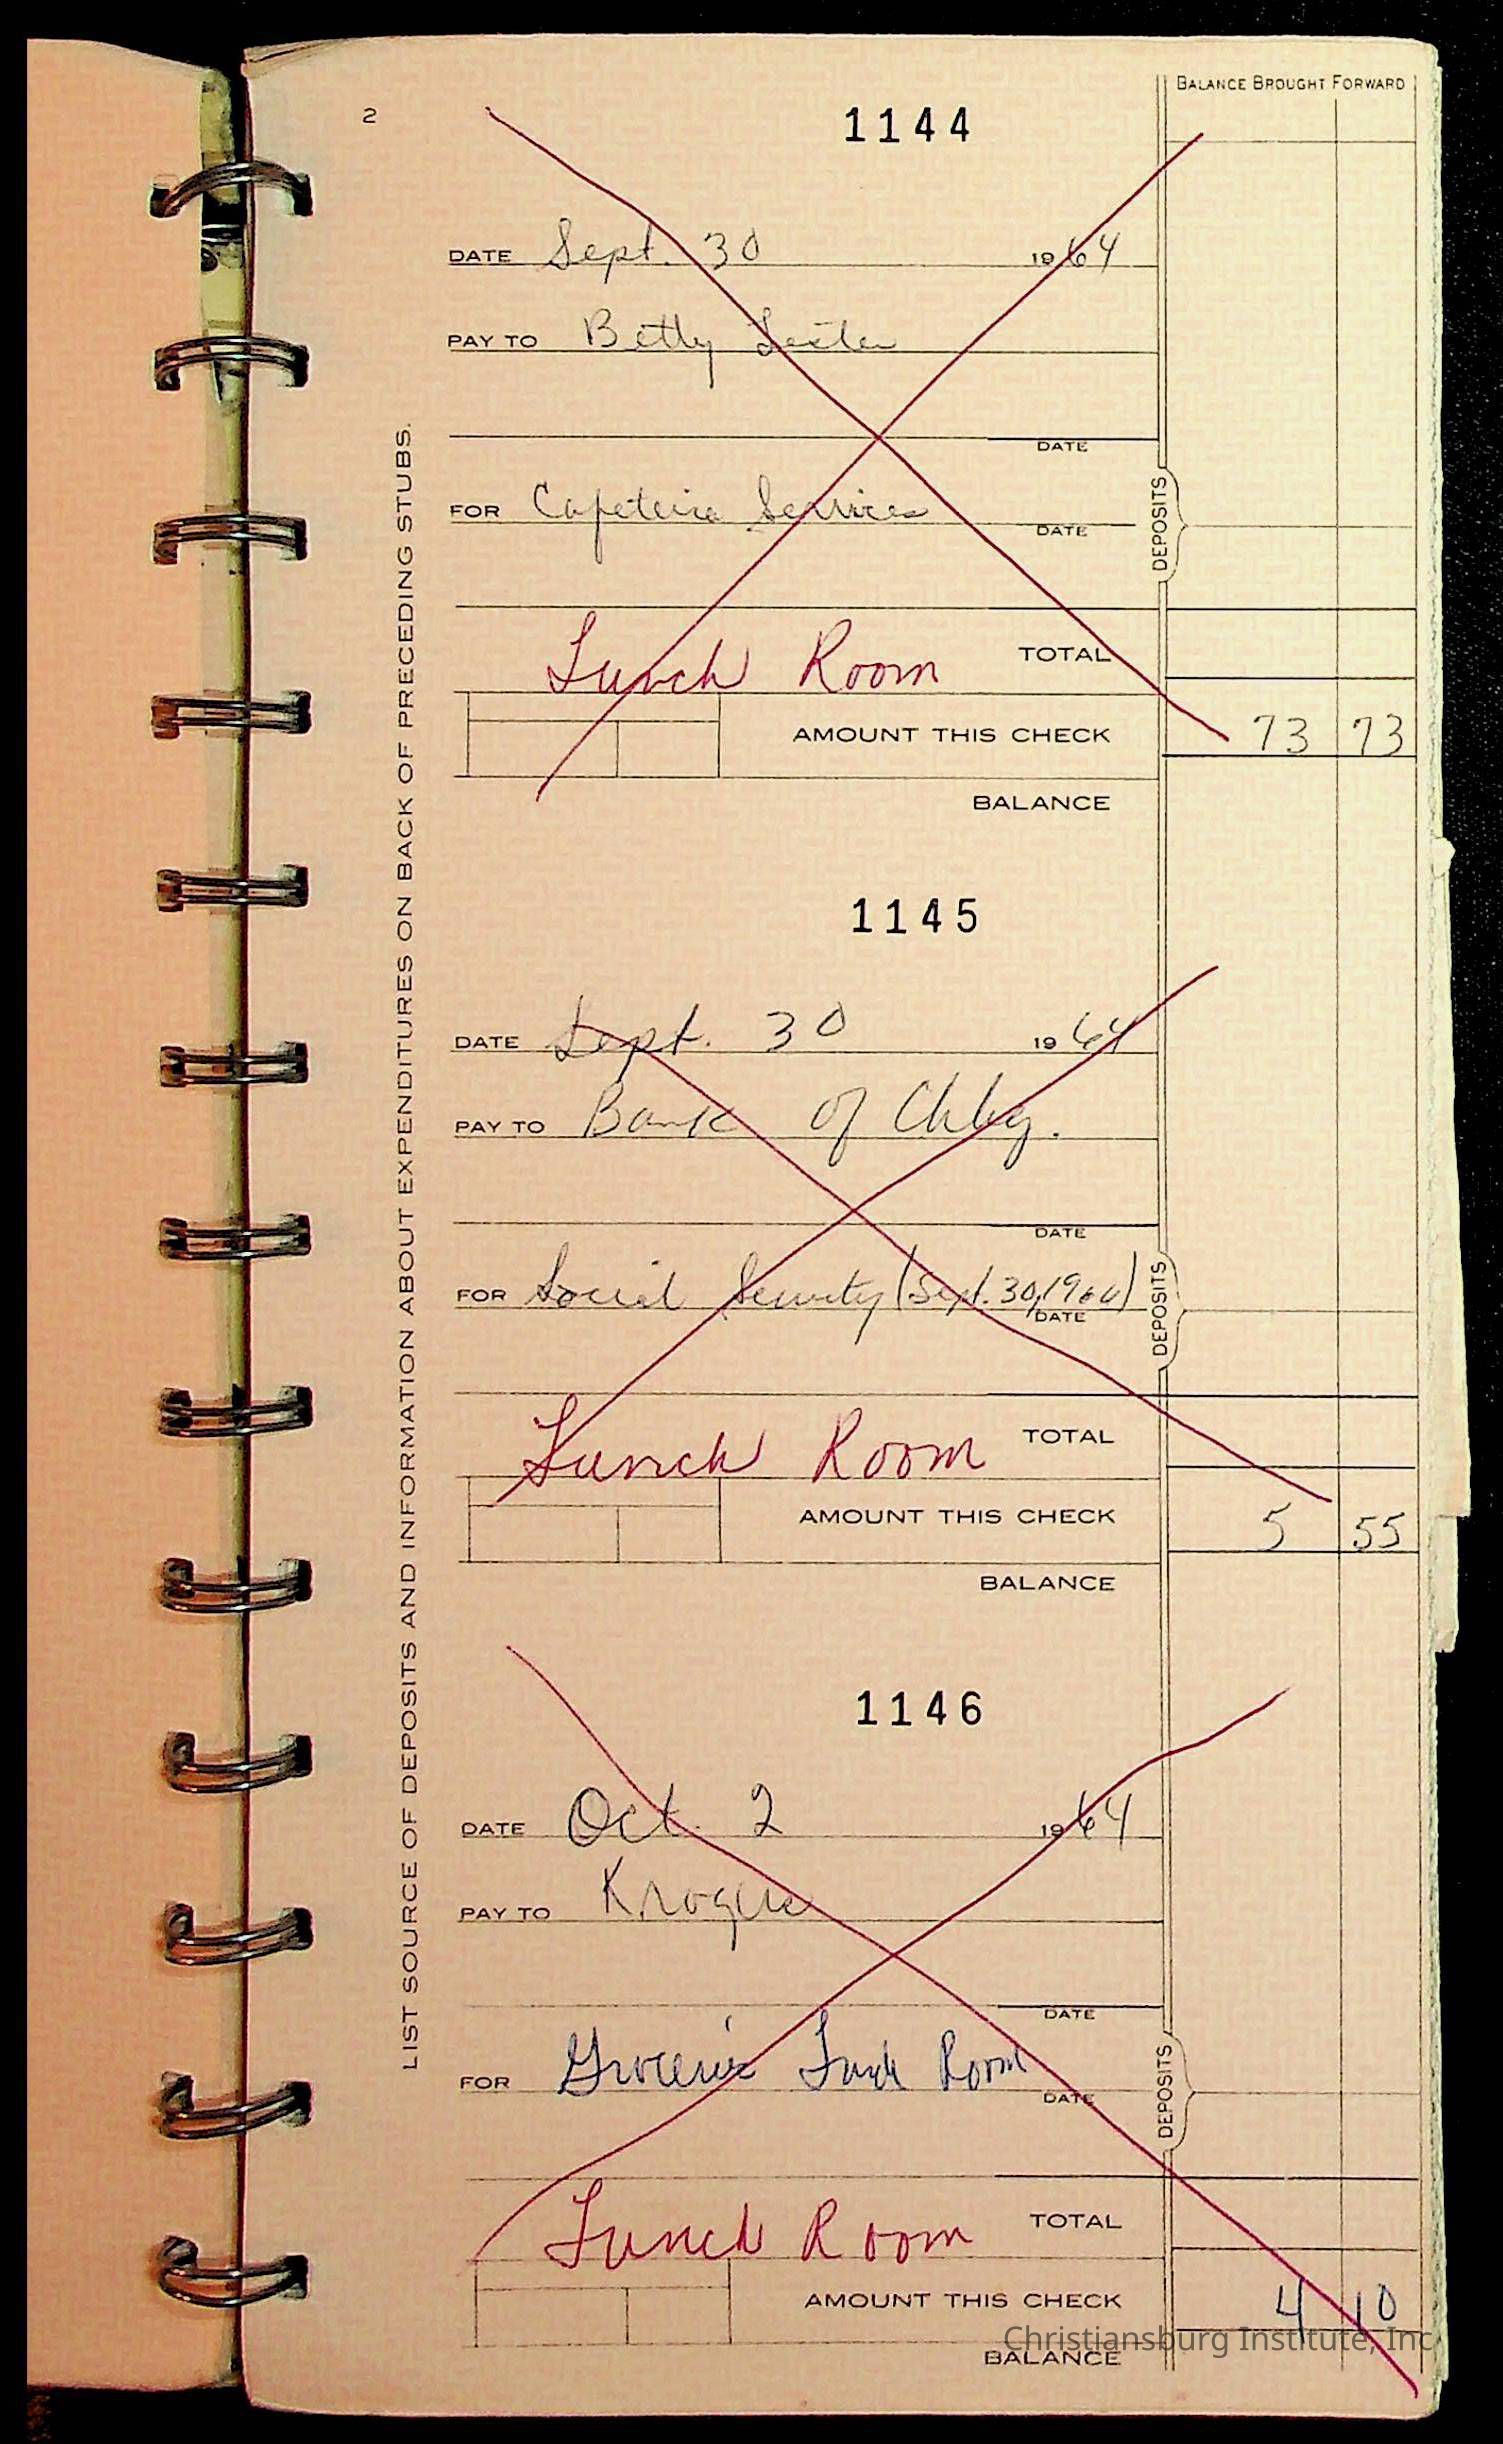 BALANCE BROUGHT FORWARD
2
1144
DATE Sept. 30 1964
PAY TO Betty Lester
DATE
FOR Cafeteria Services
DATE
DEPOSITS
Lunch Room TOTAL
AMOUNT THIS CHECK 73 73
BALANCE
LIST SOURCE OF DEPOSITS AND INFORMATION ABOUT EXPENDITURES ON BACK OF PRECEDING STUBS.
1145
DATE Sept. 30 1964
PAY TO Bank of Chbg.
DATE
FOR Social Security (Sept. 30, 1964)
DATE
DEPOSITS
Lunch Room TOTAL
AMOUNT THIS CHECK 5 55
BALANCE
1146
DATE Oct. 2 1964
PAY TO
DATE
FOR Groceries Lunch Room
DATE
DEPOSITS
Lunch Room TOTAL
AMOUNT THIS CHECK 4 10
Christiansburg Institute, Inc
BALANCE